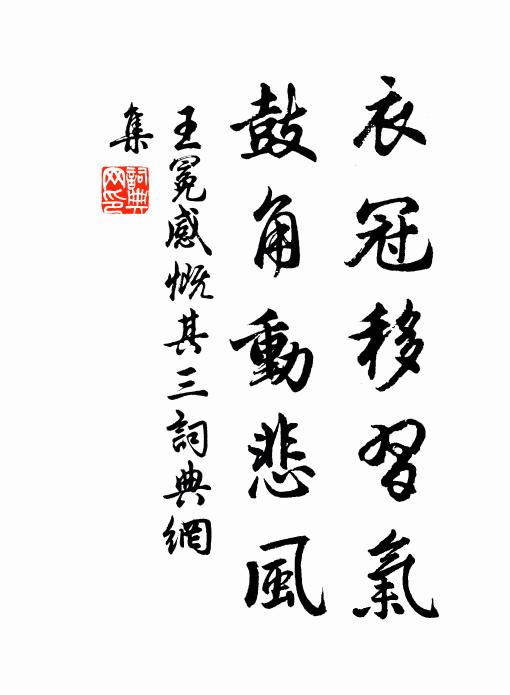 衣冠移習氣
鼓角動悲風
王冕感慨其三詞典網
集
詞典網印